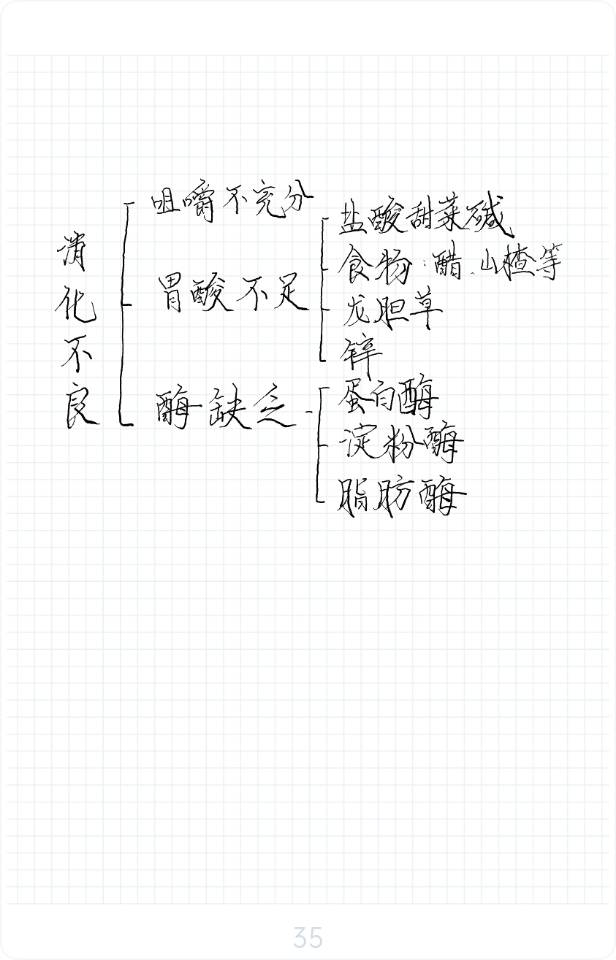 消化不良
咀嚼不充分
胃酸不足
盐酸甜菜碱
食物：醋、山楂等
龙胆草
锌
酶缺乏
蛋白酶
淀粉酶
脂肪酶
35